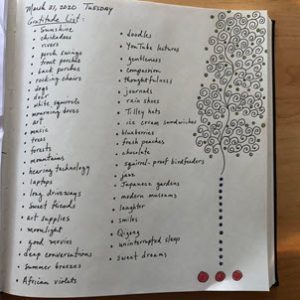 March 31, 2020 Tuesday
Gratitude List:
• Sunshine
• chickadees
• rivers
• porch swings
• front porches
• back porches
• rocking chairs
• dogs
• deer
• white squirrels
• mourning doves
• art
• music
• trees
• forests
• mountains
• hearing technology
• laptops
• long driveways
• sweet friends
• art supplies
• moonlight
• good movies
• deep conversations
• summer breezes
• African violets
• doodles
• YouTube lectures
• gentleness
• compassion
• thoughtfulness
• journals
• rain shoes
• Tilley hats
• ice cream sandwiches
• blueberries
• fresh peaches
• chocolate
• squirrel-proof birdfeeders
• jazz
• Japanese gardens
• modern museums
• laughter
• smiles
• Qigong
• uninterrupted sleep
• sweet dreams